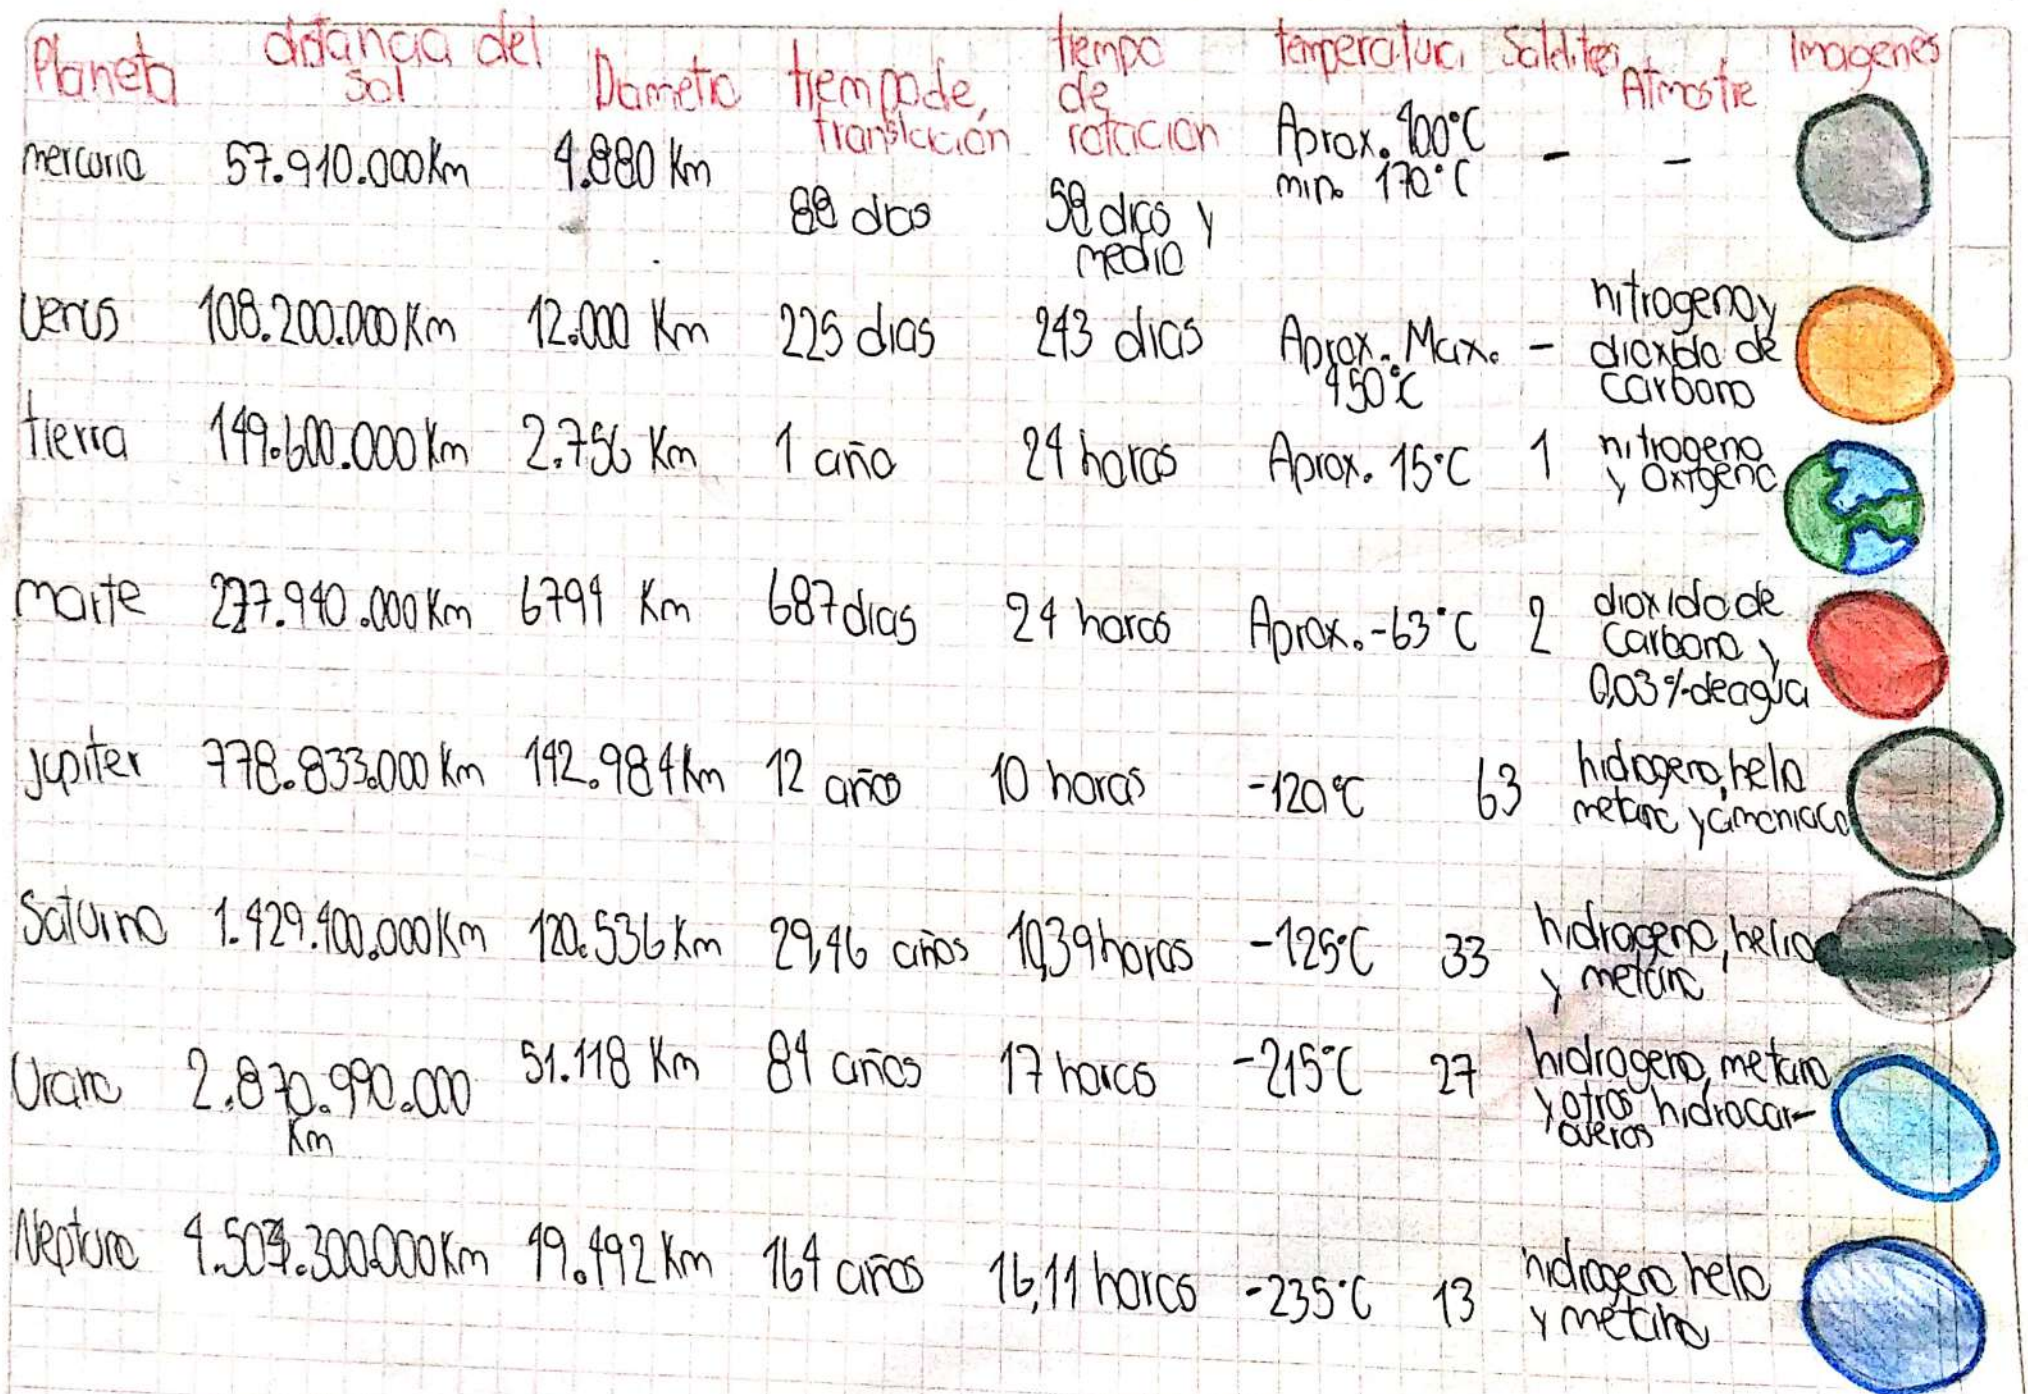 Planeta distancia del Sol Diametro tiempo de translación tiempo de rotacion temperatura Satelites Atmosfe Imagenes
mercurio 57.910.000 Km 4.880 Km 88 dias 58 dias y medio Aprox. 400°C min. 170°C - -
Venus 108.200.000 Km 12.000 Km 225 dias 243 dias Aprox. Max. 450°C - nitrogeno y dioxido de carbono
tierra 149.600.000 Km 2.756 Km 1 año 24 horas Aprox. 15°C 1 nitrogeno y oxigeno
marte 227.940.000 Km 6794 Km 687 dias 24 horas Aprox. -63°C 2 dioxido de carbono y 0,03% de agua
jupiter 778.833.000 Km 142.984 Km 12 años 10 horas -120°C 63 hidrogeno, helio metano y amoniaco
Saturno 1.429.400.000 Km 120.536 Km 29,46 años 10,39 horas -125°C 33 hidrogeno, helio y metano
Urano 2.870.990.000 Km 51.118 Km 84 años 17 horas -215°C 27 hidrogeno, metano y otros hidrocar-
Neptuno 4.504.300.000 Km 49.492 Km 164 años 16,11 horas -235°C 13 hidrogeno helio y metano